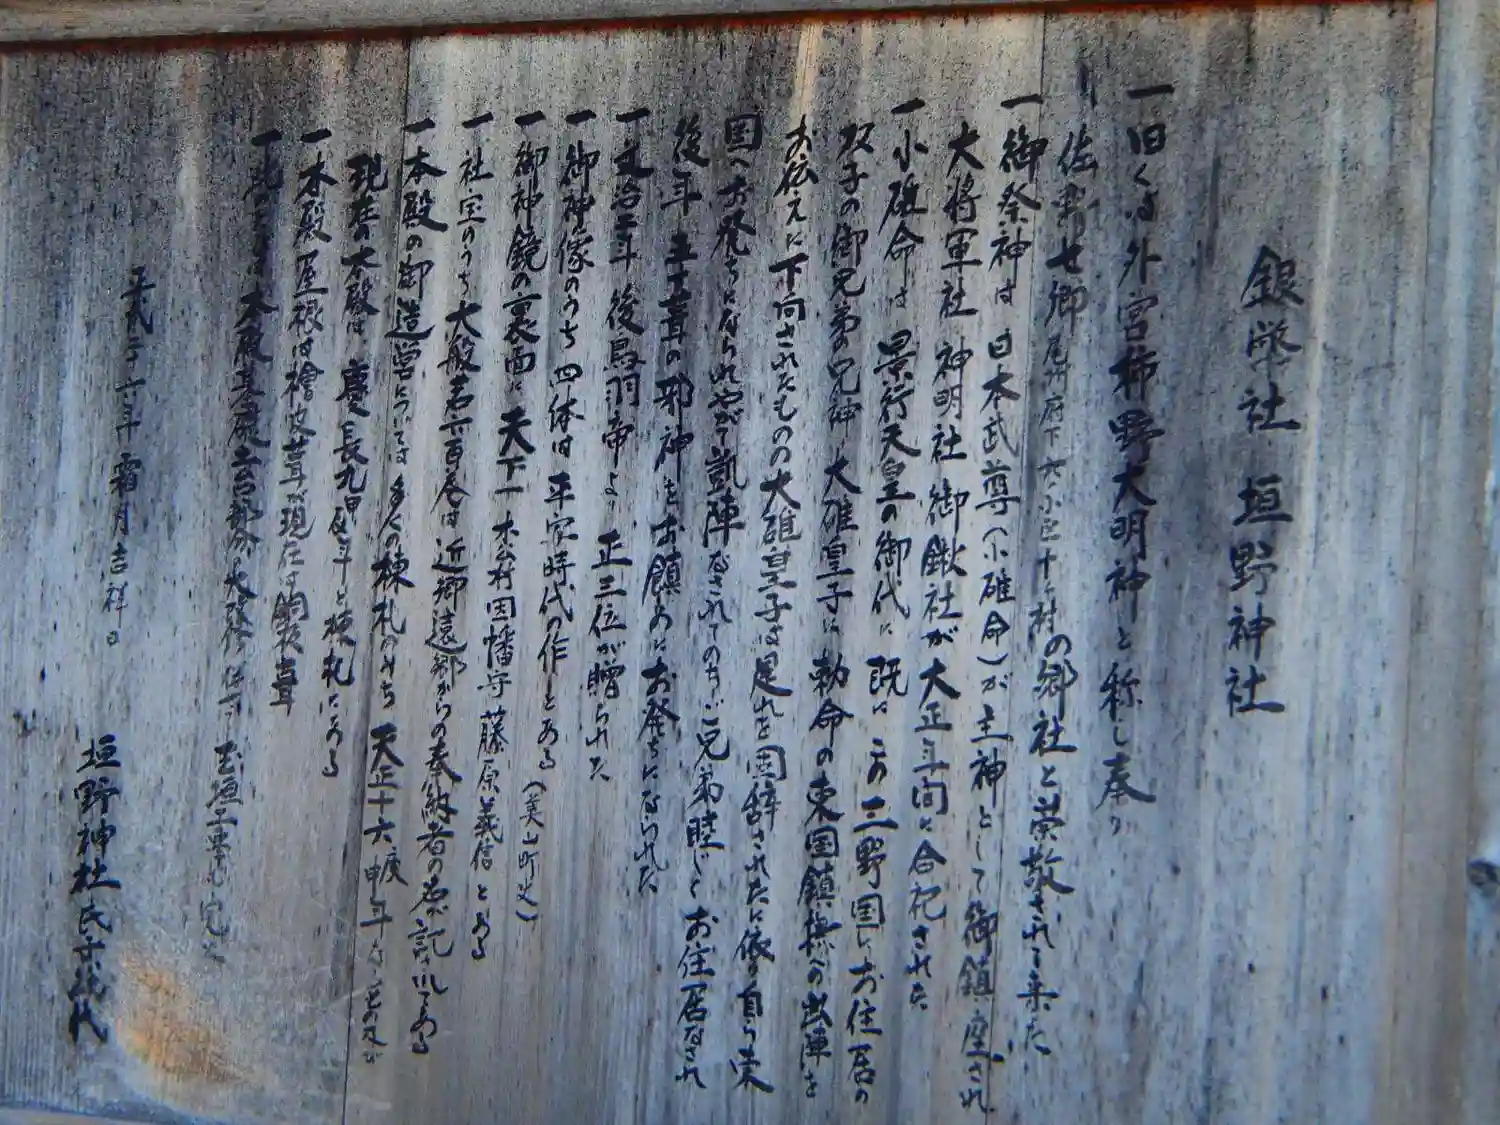 銀幣社 垣野神社
一旧くは外宮柿野大明神と称し奉り
佐野七郷 尾井府下六ヶ小邑十ヶ村 の郷社と崇敬されて来た
一御祭神は 日本武尊(小碓命)が主神として御鎮座され
大将軍社 神明社 御鍬社が大正年間に合祀された
一小碓命は 景行天皇の御代に 既に この三野国にお住居の
双子の御兄弟の兄神 大碓皇子に 勅命の東国鎮撫への出陣を
お伝えに下向されたものの大碓皇子は是れを固辞されたに依り自ら東
国へお発ちになられやがて凱陣なされてのちご兄弟睦じくお住居なされ
後年 五十葺の邪神をお鎮めにお発ちになられた
一文治二年 後鳥羽帝より 正三位が贈られた
一御神像のうち 四体は 平安時代の作とある (美山町史)
一御神鏡の裏面に 天下一 木公村因幡守藤原義信とある
一社宝のうち 大般若六百巻は 近郷遠郷からの奉納者の名が記されてある
一本殿の御造営については 多くの棟札のうち 天正十六庚申年
現在の本殿は 慶長九甲辰年と棟札にある
一本殿 屋根は檜皮葺が現在は銅板葺
本殿 大改修 玉垣工事も完
霜月吉祥日
垣野神社氏子総代